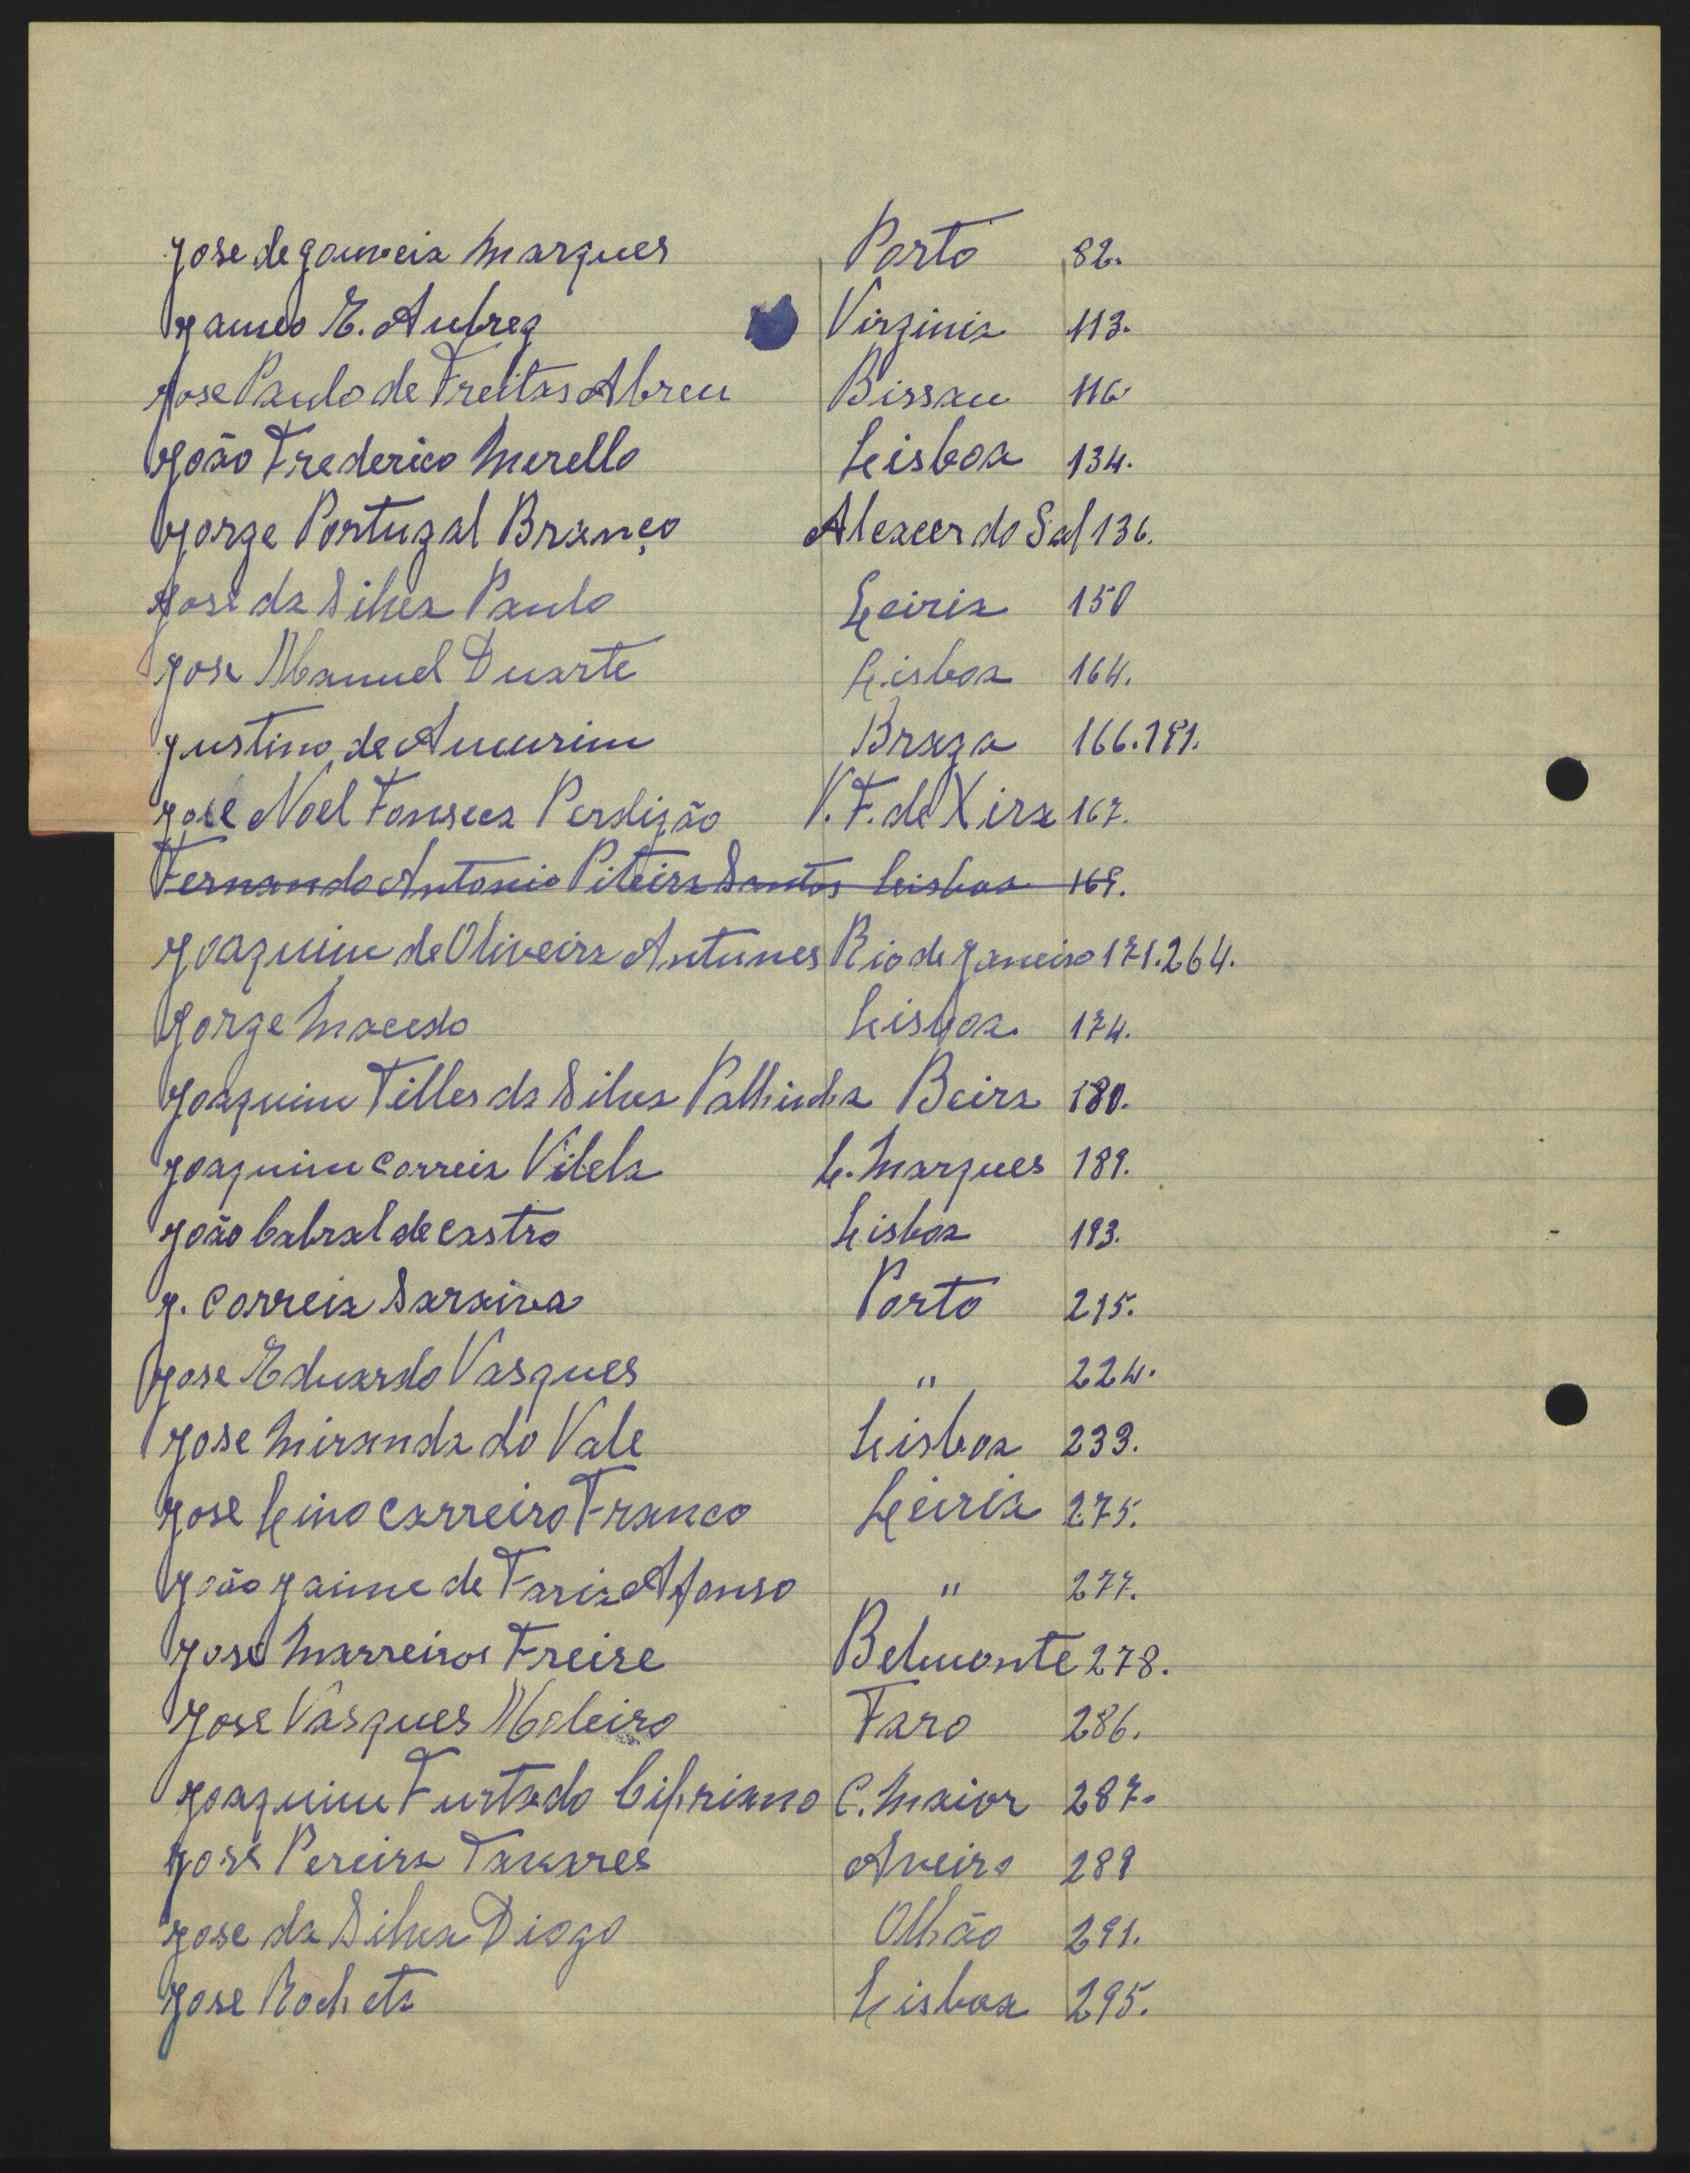 Jose de Gouveia Marques Porto 82.
James E. Aubrey Virginia 113.
Jose Paulo de Freitas Abreu Bissau 116
João Frederico Merello Lisboa 134.
Jorge Portugal Branço Alcacer do Sal 136.
José da Silva Paulo Leiria 150
Jose Manuel Duarte Lisboa 164.
Justino de Amurim Braga 166.191.
Jose Noel Fonseca Perdigão V. F. de Xira 167.
Fernando Antonio Piteira Santos Lisboa 169.
Joaquim de Oliveira Antunes Rio de Janeiro 171.264.
Jorge Macedo Lisboa 174.
Joaquim Telles da Silva Palhinha Beira 180.
Joaquim Correia Vilela L. Marques 189.
João Cabral de Castro Lisboa 193.
J. Correia Saraiva Porto 215.
Jose Eduardo Vasques " 224.
Jose Miranda do Vale Lisboa 233.
Jose Lino Carreiro Franco Leiria 275.
João Jaime de Faria Afonso " 277.
José Marreiros Freire Belmonte 278.
Jose Vasques Moleiro Faro 286.
Joaquim Furtado Cipriano C. Maior 287.
José Pereira Tavares Aveiro 289
Jose da Silva Diogo Olhão 291.
Jose Rocheta Lisboa 295.